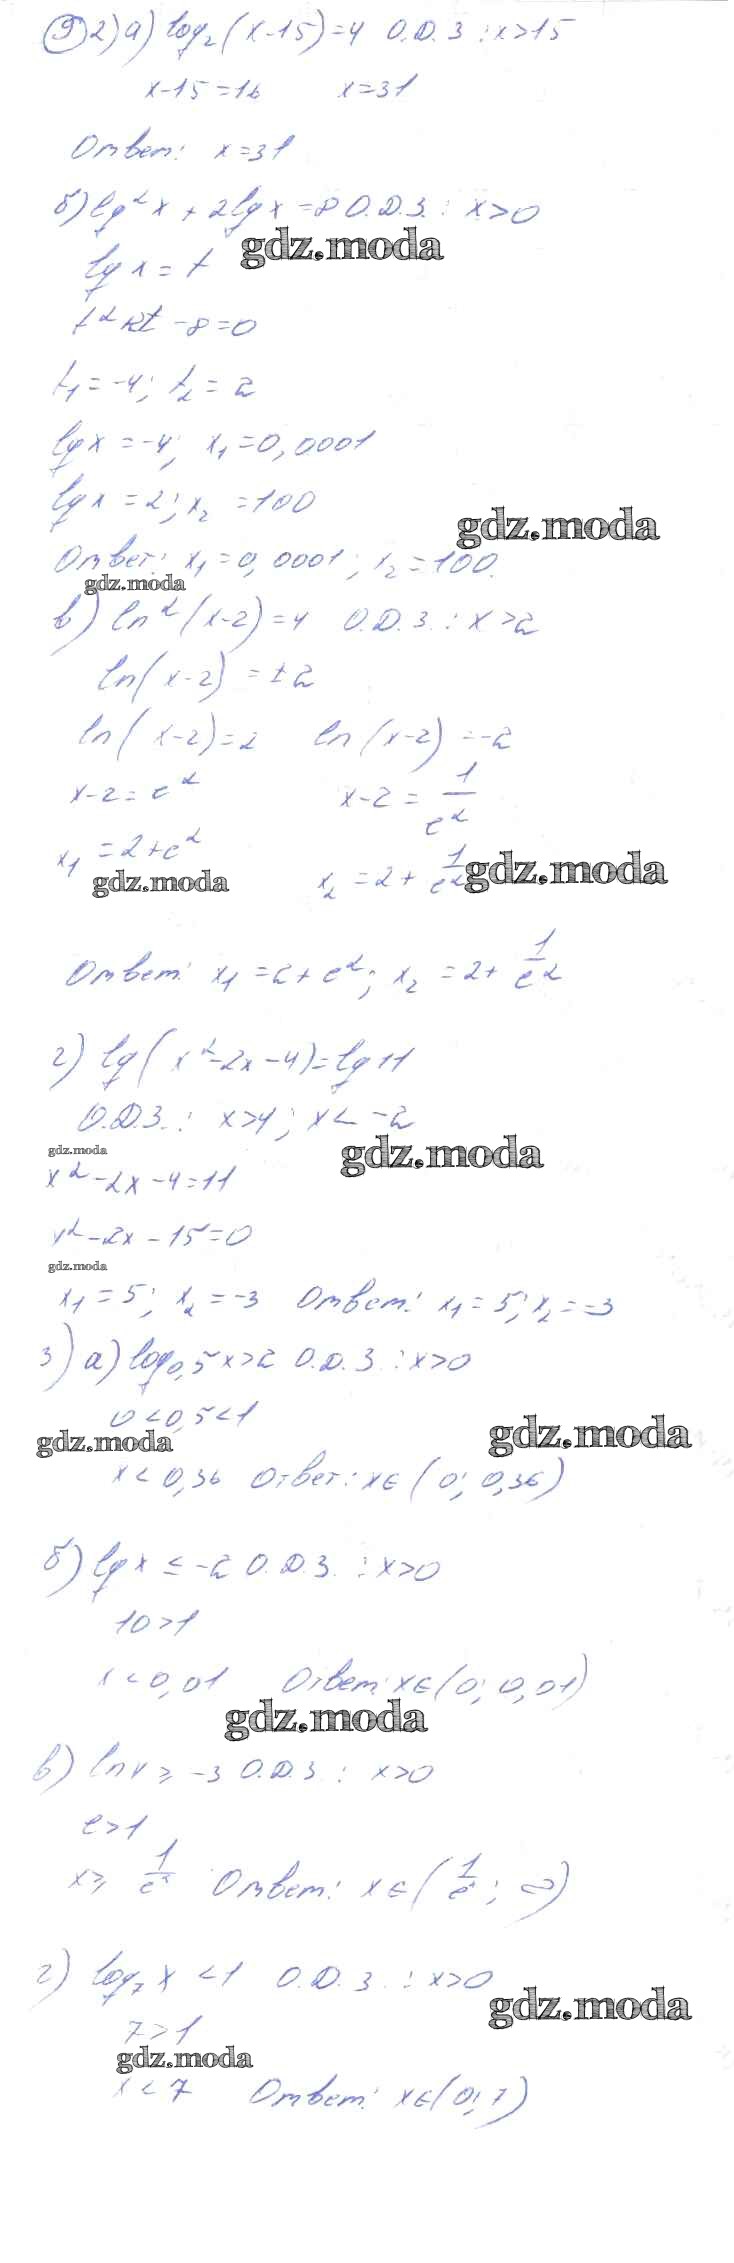 9) 2) а) log₂(x-15)=4 О.Д.З : x>15
x-15=16 x=31
Ответ: x=31
б) lg²x+2lgx=8 О.Д.З. : x>0
gdz.moda
lgx=t
-8=0
t₁=-4; t₂=2
lgx=-4; x₁=0,0001
lgx=2; x₂=100
gdz.moda
Ответ: x₁=0,0001; x₂=100.
gdz.moda
в) ln²(x-2)=4 О.Д.З. : x>2
ln(x-2)=±2
ln(x-2)=2 ln(x-2)=-2
x-2=e² x-2=1/e²
x₁=2+e² x₂=2+1/e²
gdz.moda gdz.moda
Ответ: x₁=2+e²; x₂=2+1/e²
г) lg(x²-2x-4)=lg11
О.Д.З. : x>4; x<-2
gdz.moda gdz.moda
x²-2x-4=11
x²-2x-15=0
gdz.moda
x₁=5; x₂=-3 Ответ: x₁=5; x₂=-3
3) а) log₀,₅x>2 О.Д.З. : x>0
0<0,5<1
gdz.moda gdz.moda
x<0,36 Ответ: x∈(0; 0,36)
б) lgx≤-2 О.Д.З. : x>0
10>1
x<0,01 Ответ: x∈(0; 0,01)
gdz.moda
в) lnx≥-3 О.Д.З. : x>0
e>1
x≥ Ответ: x∈( ; ∞)
г) log₇x<1 О.Д.З. : x>0
gdz.moda
7>1
gdz.moda
x<7 Ответ: x∈(0; 7)